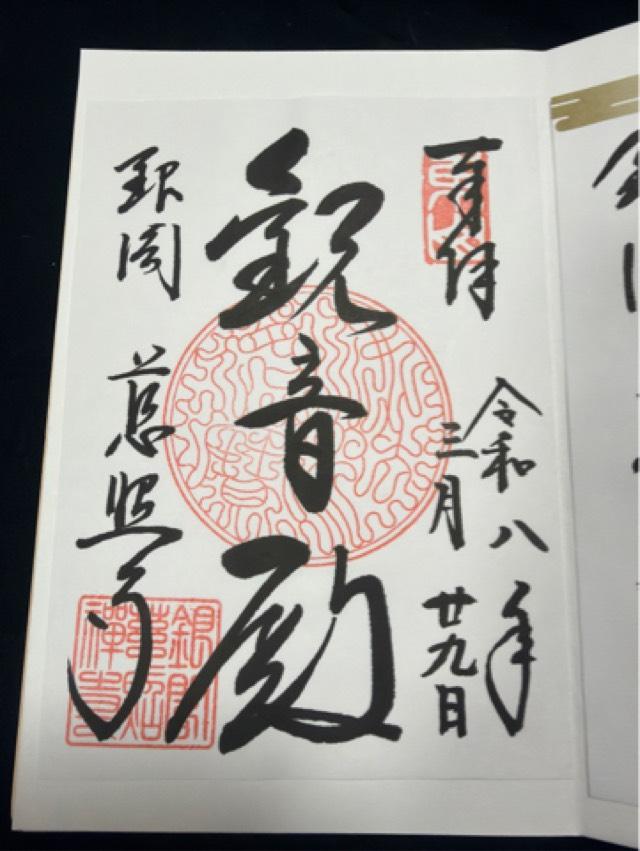 奉拝
令和八年
三月廿九日
観音殿
銀閣 慈照寺
銀閣
慈照
禪寺